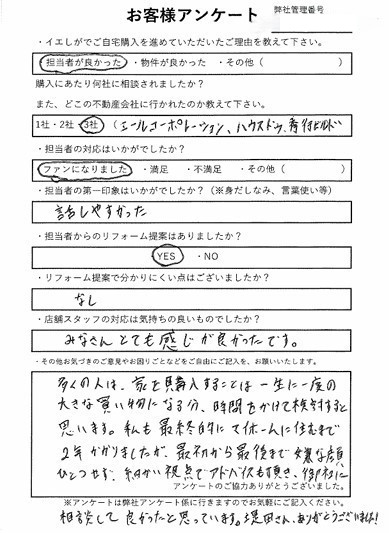 お客様アンケート 弊社管理番号
・イエしがでご自宅購入を進めていただいたご理由を教えて下さい。
担当者が良かった ・物件が良かった ・その他( )
購入にあたり何社に相談されましたか?
また、どこの不動産会社に行かれたのか教えて下さい。
1社・2社・3社 (エールコーポレーション、ハウスドゥ、
・担当者の対応はいかがでしたか?
ファンになりました ・満足 ・不満足 ・その他( )
・担当者の第一印象はいかがでしたか?(※身だしなみ、言葉使い等)
話しやすかった
・担当者からのリフォーム提案はありましたか?
YES ・NO
・リフォーム提案で分かりにくい点はございましたか?
なし
・店舗スタッフの対応は気持ちの良いものでしたか?
みなさんとても感じが良かったです。
・その他お気づきのご意見やお困りごとなどをご自由にご記入を、お願いいたします。
多くの人は、家を購入することは一生に一度の
大きな買い物になる分、時間をかけて検討すると
思います。私も最終的にマイホームに住むまで
2年かかりましたが、最初から最後まで嫌な顔
ひとつせず、細かい視点でアドバイスも頂き、御社に
アンケートのご協力ありがとうございました。
※アンケートは弊社アンケート係に行きますのでお気軽にご記入ください。
相談して良かったと思っています。堤田さん、ありがとうございました!